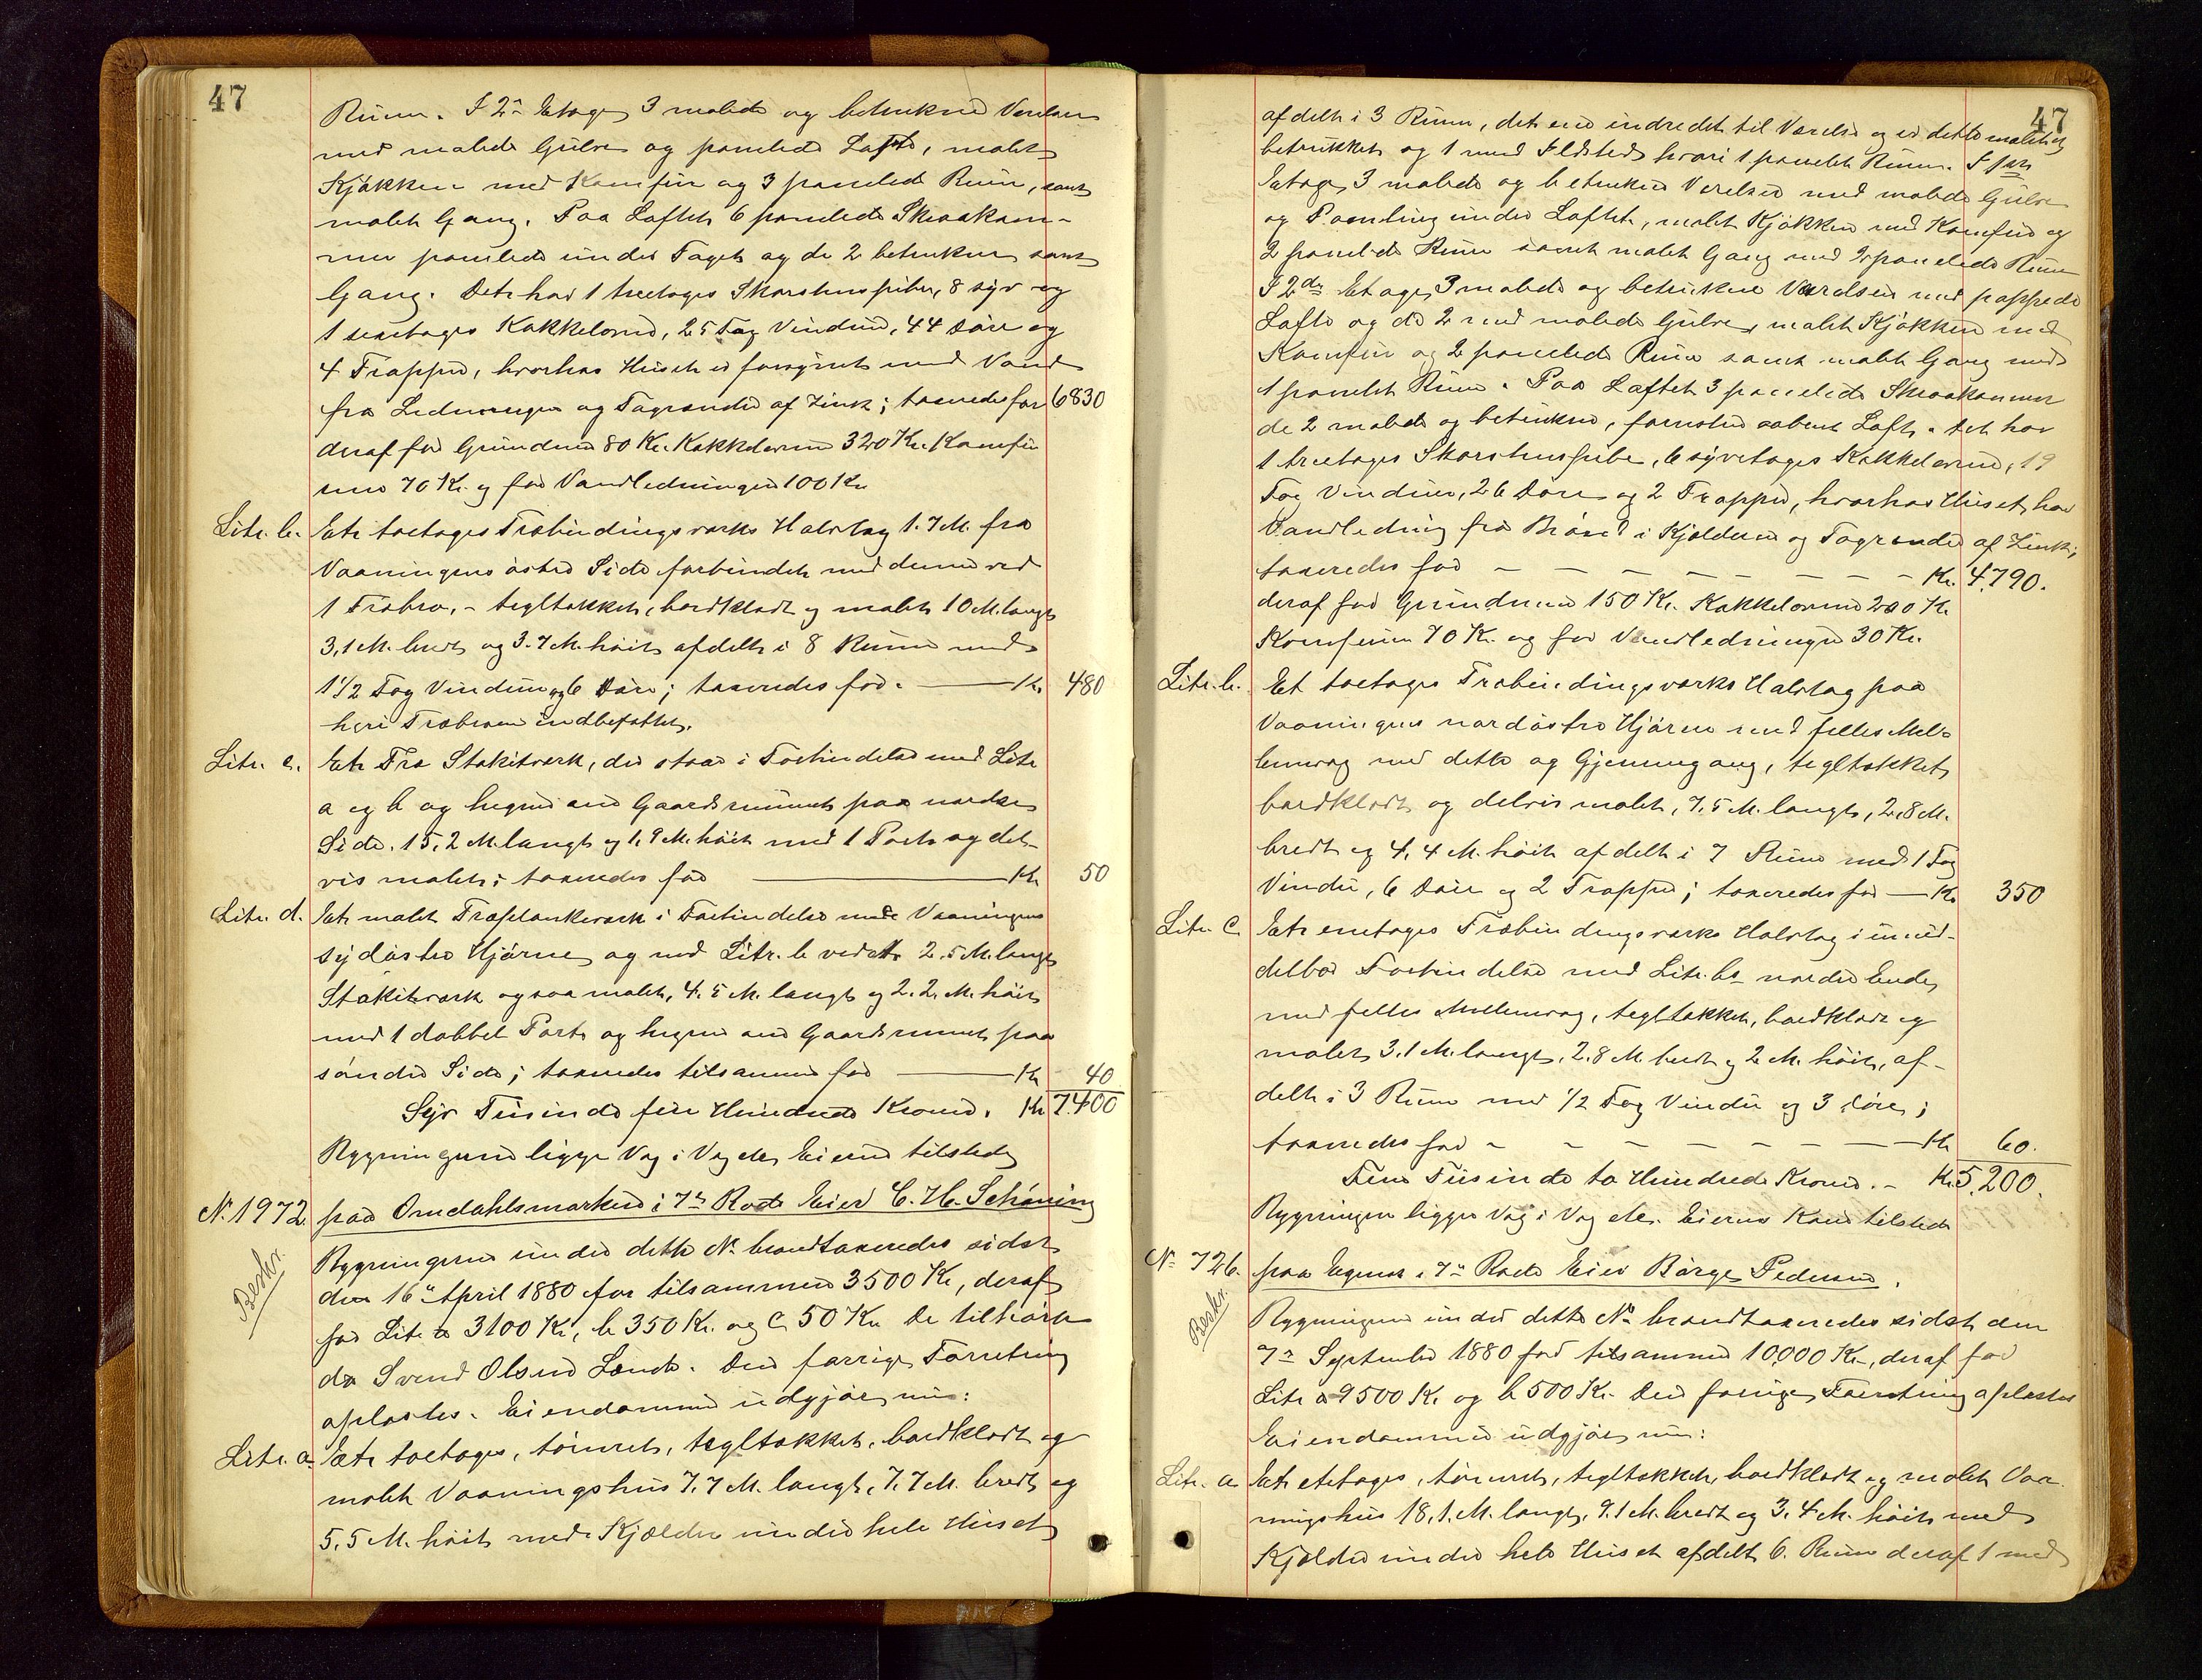 47
Rum. I 2den Etage 3 malede og betrukne Værelser
med malede Gulve og panelede Lofte, malet
Kjøkken med Komfur og 3 panelede Rum, samt
malet Gang. Paa Loftet 6 panelede Skraakam-
mer panelede under Taget og de 2 betrukne, samt
Gang. Det har 1 treetages Skorstenspibe, 8 syv og
1 sexetages Kakkelovne, 25 Fag Vinduer, 44 Døre og
4 Trapper, hvorhos Huset er forsynet med Vand
fra Ledningen og Tagrender af Zink; taxeredes for 6830
deraf for Grunden 80 Kr. Kakkelovne 320 Kr. Komfu
rene 70 Kr. og for Vandledningen 100 Kr
Litr. b. Et toetages Træbindingsværks Halvtag 1.7 M. fra
Vaaningens østre Side forbundet med denne ved
1 Træbro, - tegltækket, bordklædt og malet 10 M. langt
3,1 M. bredt og 3.7 M. høit, afdelt i 8 Rum med
1 1/2 Fag Vinduer og 6 Døre; taxeredes for. Kr. 480
heri Træbroen indbefattet.
Litr. c. Et Træ Stakitværk, der staar i Forbindelse med Litr
a og b og hegner om Gaardsrummet paa nordre
Side, 15,2 M. langt og 1,9 M. høit med 1 Port og del-
vis malet; taxeredes for Kr 50
Litr. d. Et malet Træplankeværk i Forbindelse med Vaaningens
sydøstre Hjørne og med Litr. b ved et 2,5 M. langt
Stakitværk ogsaa malet, 4.5 M. langt og 2.2 M. høit
med 1 dobbel Port og hegner om Gaardsrummet paa
søndre Side; taxeredes tilsammen for Kr 40
Syv Tusinde fire Hundrede Kroner. Kr 7400
Bygningerne ligge Væg i Væg etc. Eieren tilstede
N. 1972. paa Omdahlsmarken i 7de Rode Eier C. H. Schøning
Beskr.
Bygningerne under dette No brandtaxeredes sidst
den 16de April 1880 for tilsammen 3500 Kr, deraf
for Litr a 3100 Kr, b 350 Kr. og c 50 Kr. De tilhørte
da Svend Olsen Lende. Den forrige Forretning
oplæstes. Eiendommen udgjør nu:
Litr. a. Et toetages, tømret, tegltækket, bordklædt og
malet Vaaningshus 7.7 M. langt, 7.7 M. bredt og
5.5 M. høit med Kjælder under hele Huset
47
afdelt i 3 Rum, det ene indredet til Værelse og er dette malet og
betrukket og 1 med Ildsted hvori 1 panelet Rum. I 1ste
Etage 3 malede og betrukne Værelser med malede Gulve
og Panling under Loftet, malet Kjøkken med Komfur og
2 panelede Rum samt malet Gang med 2 panelede Rum
I 2den Etage 3 malede og betrukne Værelser med pappede
Lofte og de 2 med malede Gulve, malet Kjøkken med
Komfur og 2 panelede Rum samt malet Gang med
1 panelet Rum. Paa Loftet 3 panelede Skraakammer
de 2 malede og betrukne, forresten aabent Loft. Det har
1 treetages Skorstenspibe, 6 syvetages Kakkelovne, 19
Fag Vinduer, 26 Døre og 2 Trapper, hvorhos Huset har
Vandledning fra Brønd i Kjælderen og Tagrender af Zink;
taxeredes for Kr. 4,790.
deraf for Grunden 150 Kr. Kakkelovne 200 Kr
Komfuren 70 Kr. og for Vandledningen 30 Kr.
Litr. b. Et toetages Træbindingsværks Halvtag paa
Vaaningens nordøstre Hjørne med fælles Mel-
lemvæg med dette og Gjennemgang, tegltækket
bordklædt og delvis malet, 7,5 M. langt, 2,8 M.
bredt og 4,4 M. høit afdelt i 7 Rum med 1 Fag
Vindu, 6 Døre og 2 Trapper; taxeredes for Kr. 350
Litr. c. Et enetages Træbindingsværks Halvtag i umid-
delbar Forbindelse med Litr. bs nordre Ende
med fælles Mellemvæg, tegltækket, bordklædt og
malet 3,1 M. langt, 2,8 M. bredt og 2 M. høit, af-
delt i 3 Rum med 1/2 Fag Vindu og 3 Døre;
taxeredes for Kr 60.
Fem Tusinde to Hundrede Kroner. - Kr. 5,200.
Bygningen ligger Væg i Væg etc. Eierens Kone tilstede
No 726. paa Egenes i 7de Rode Eier Børge Pedersen.
Beskr.
Bygningerne under dette No brandtaxeredes sidst den
7de September 1880 for tilsammen 10,000 Kr, deraf for
Litr a 9500 Kr og b 500 Kr. Den forrige Forretning oplæstes
Eiendommen udgjør nu:
Litr. a. Et etetages, tømret, tegltækket, bordklædt og malet Vaa-
ningshus 18,1 M. langt, 9.1 M. bredt og 3,4 M. høit med
Kjælder under hele Huset afdelt 6 Rum deraf 1 med